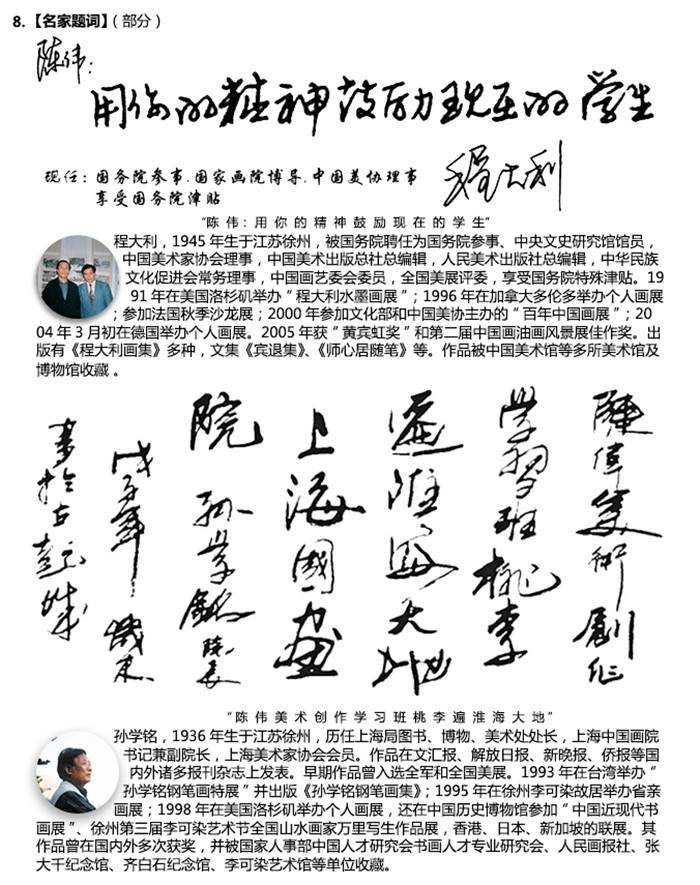 8.【名家题词】（部分）
陈伟：
用你的精神鼓励现在的学生
程大利
现任：国务院参事.国家画院博导.中国美协理事
享受国务院津贴
“陈伟：用你的精神鼓励现在的学生”
程大利，1945年生于江苏徐州，被国务院聘任为国务院参事、中央文史研究馆馆员，
中国美术家协会理事，中国美术出版总社总编辑，人民美术出版社总编辑，中华民族
文化促进会常务理事，中国画艺委会委员，全国美展评委，享受国务院特殊津贴。19
91年在美国洛杉矶举办“程大利水墨画展”；1996年在加拿大多伦多举办个人画展
；参加法国秋季沙龙展；2000年参加文化部和中国美协主办的“百年中国画展”；20
04年3月初在德国举办个人画展。2005年获“黄宾虹奖”和第二届中国画油画风景展佳作奖。出
版有《程大利画集》多种，文集《宾退集》、《师心居随笔》等。作品被中国美术馆等多所美术馆及
博物馆收藏 。
陳偉美術創作
学習班桃李
遍淮海大地
上海國画
院 孙学銘
戊子年
書於古彭城
“陈伟美术创作学习班桃李遍淮海大地”
孙学铭，1936年生于江苏徐州，历任上海局图书、博物、美术处处长，上海中国画院
书记兼副院长，上海美术家协会会员。作品在文汇报、解放日报、新晚报、侨报等国
内外诸多报刊杂志上发表。早期作品曾入选全军和全国美展。1993年在台湾举办“
孙学铭钢笔画特展”并出版《孙学铭钢笔画集》；1995年在徐州李可染故居举办省亲
画展；1998年在美国洛杉矶举办个人画展，还在中国历史博物馆参加“中国近现代书
画展”、徐州第三届李可染艺术节全国山水画家万里写生作品展，香港、日本、新加坡的联展。其
作品曾在国内外多次获奖，并被国家人事部中国人才研究会书画人才专业研究会、人民画报社、张
大千纪念馆、齐白石纪念馆、李可染艺术馆等单位收藏。